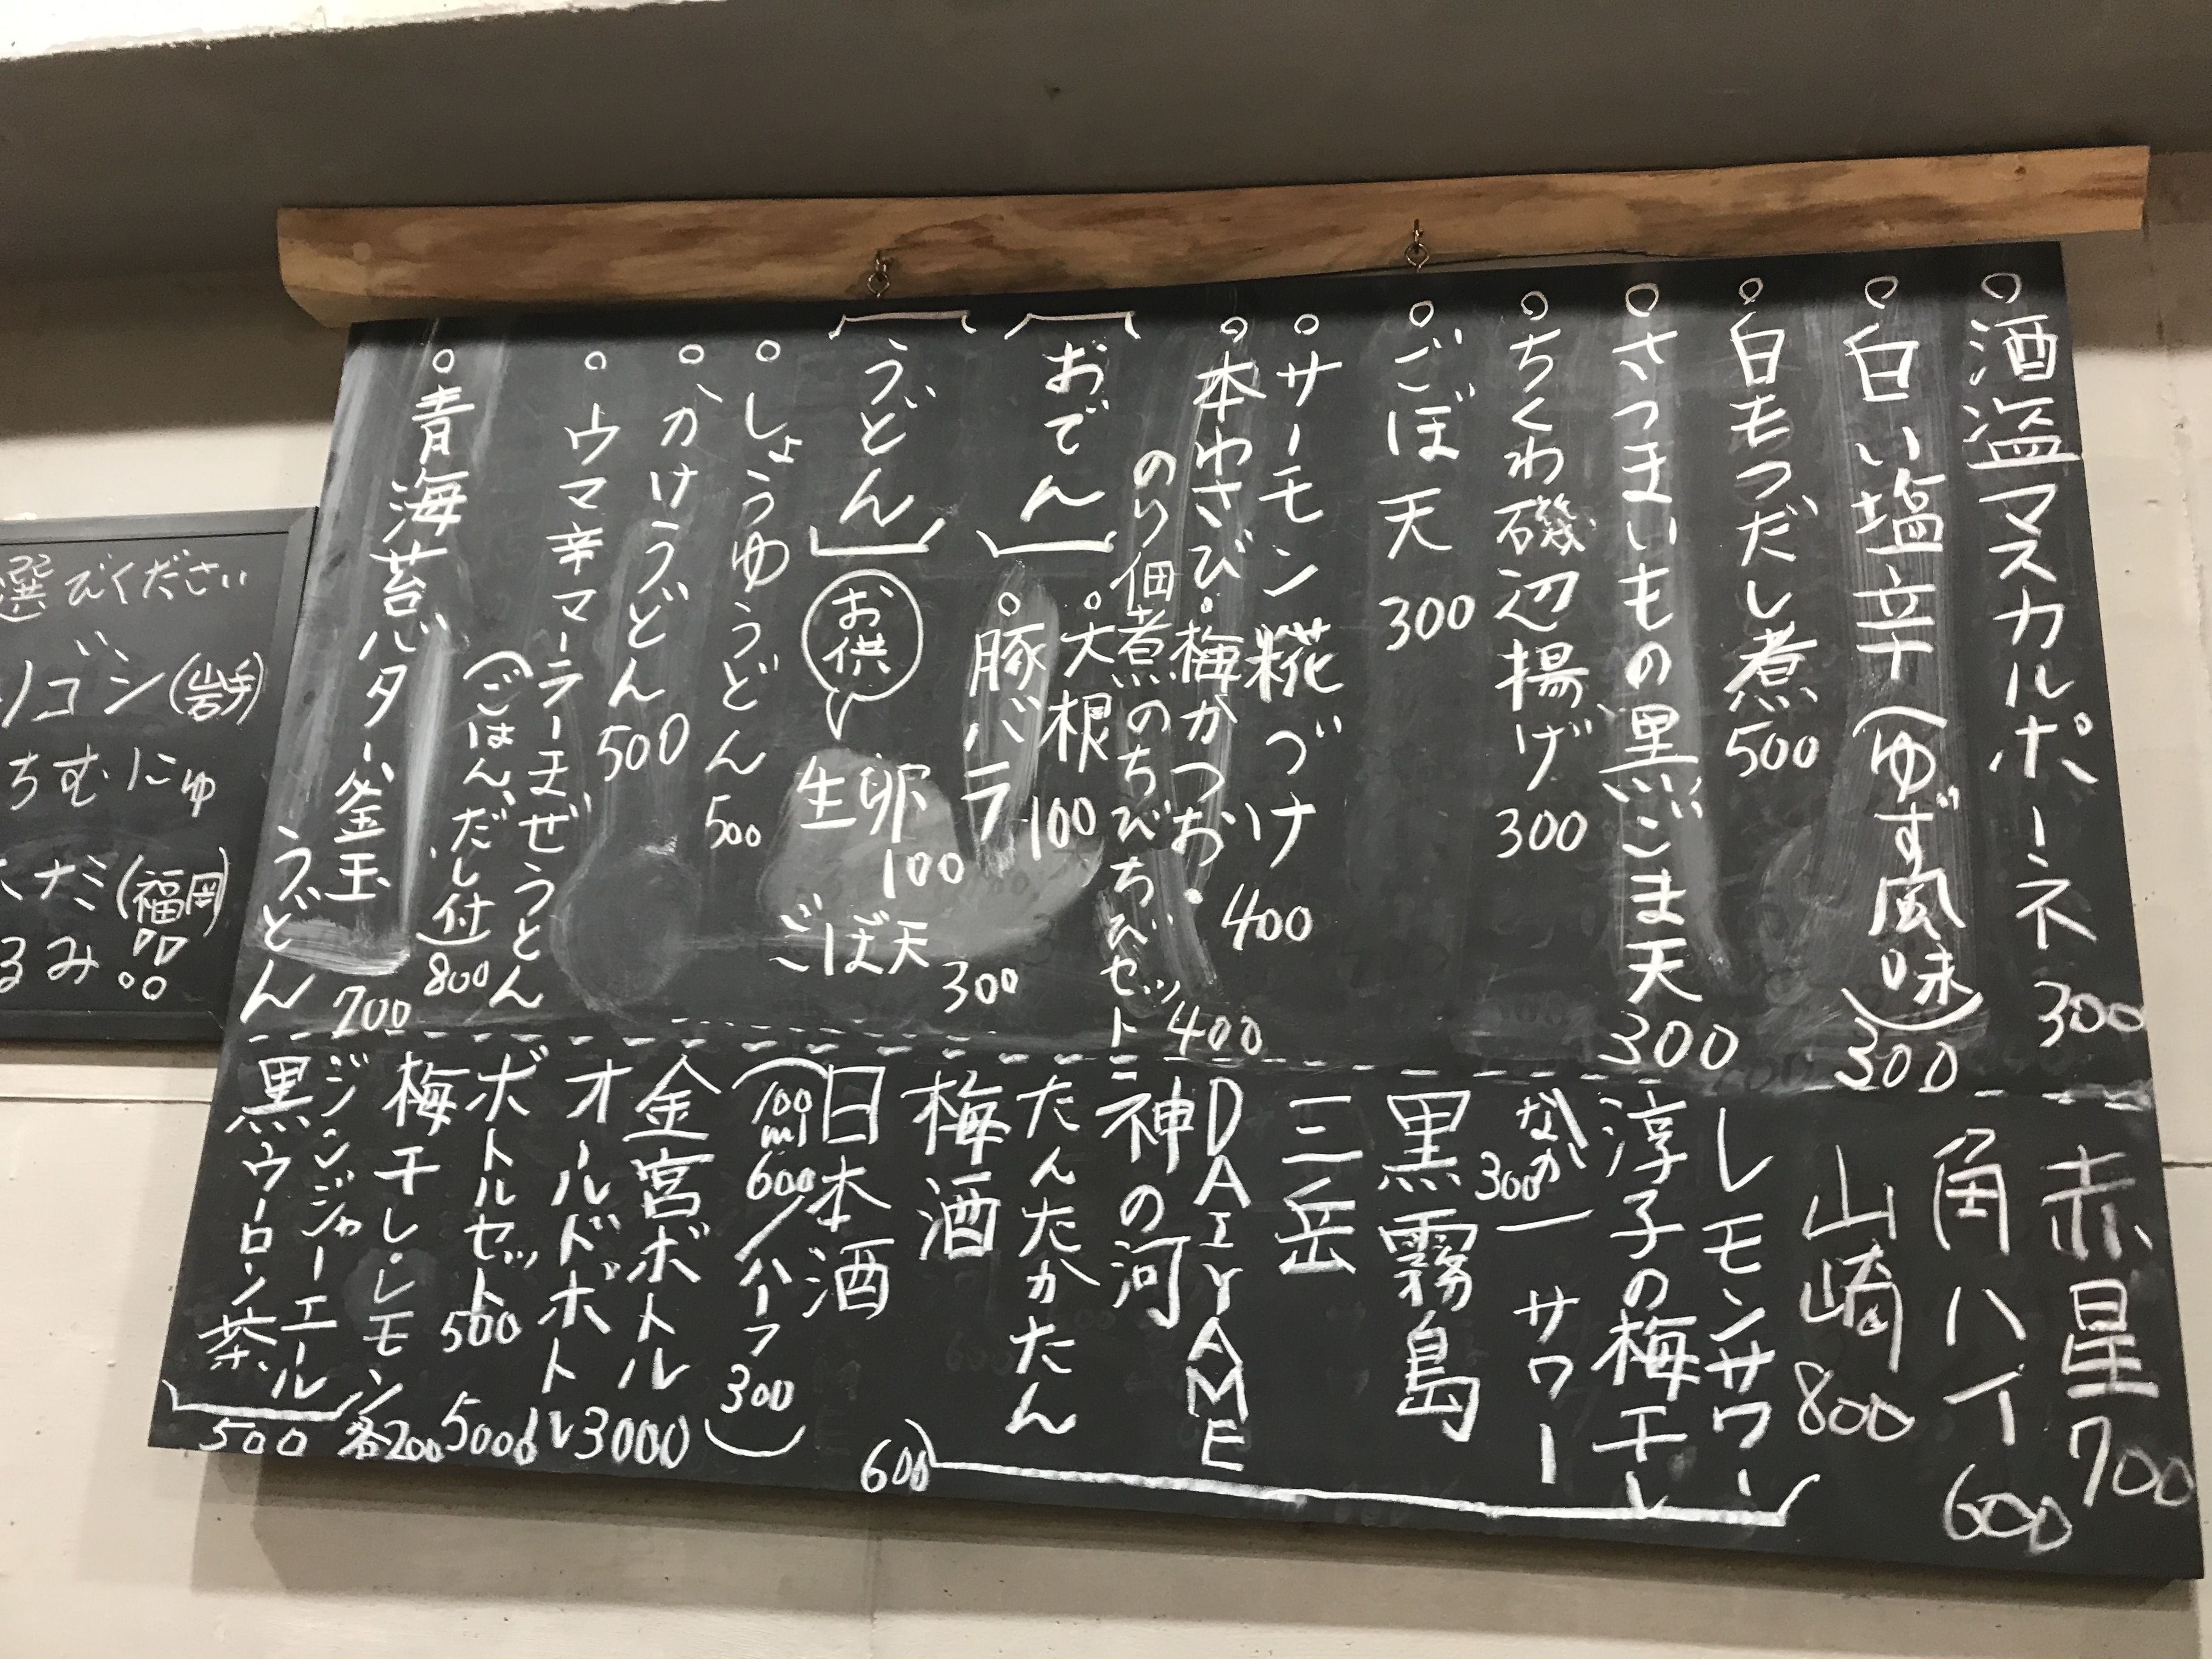 酒盗マスカルポーネ 300
白い塩辛(ゆず風味) 300
白もつだし煮 500
さつまいもの黒ごま天 300
ちくわ磯辺揚げ 300
ごぼ天 300
サーモン糀づけ 400
本わさび・梅かつお・
のり佃煮のちびちびセット 400
おでん
大根 100
豚バラ
うどん
お供
卵 100
生
ごぼ天 300
しょうゆうどん 500
かけうどん 500
ウマ辛マーラーまぜうどん
(ごはん、だし付) 800
青海苔バター釜玉
うどん 700
赤星 700
角ハイ 600
山崎 800
レモンサワー
淳子の梅干し
サワー
なか 300
黒霧島
三岳
DAIYAME
神の河
たんたかたん
梅酒
600
日本酒
(100ml 600/ハーフ 300)
金宮ボトル 3000
オールドボトル 5000
ボトルセット 500
梅干し・レモン 各200
ジンジャーエール
黒ウーロン茶
500
選びください
ゴシ(岩手)
ちむにゅ
ナミ(福岡)
るみ